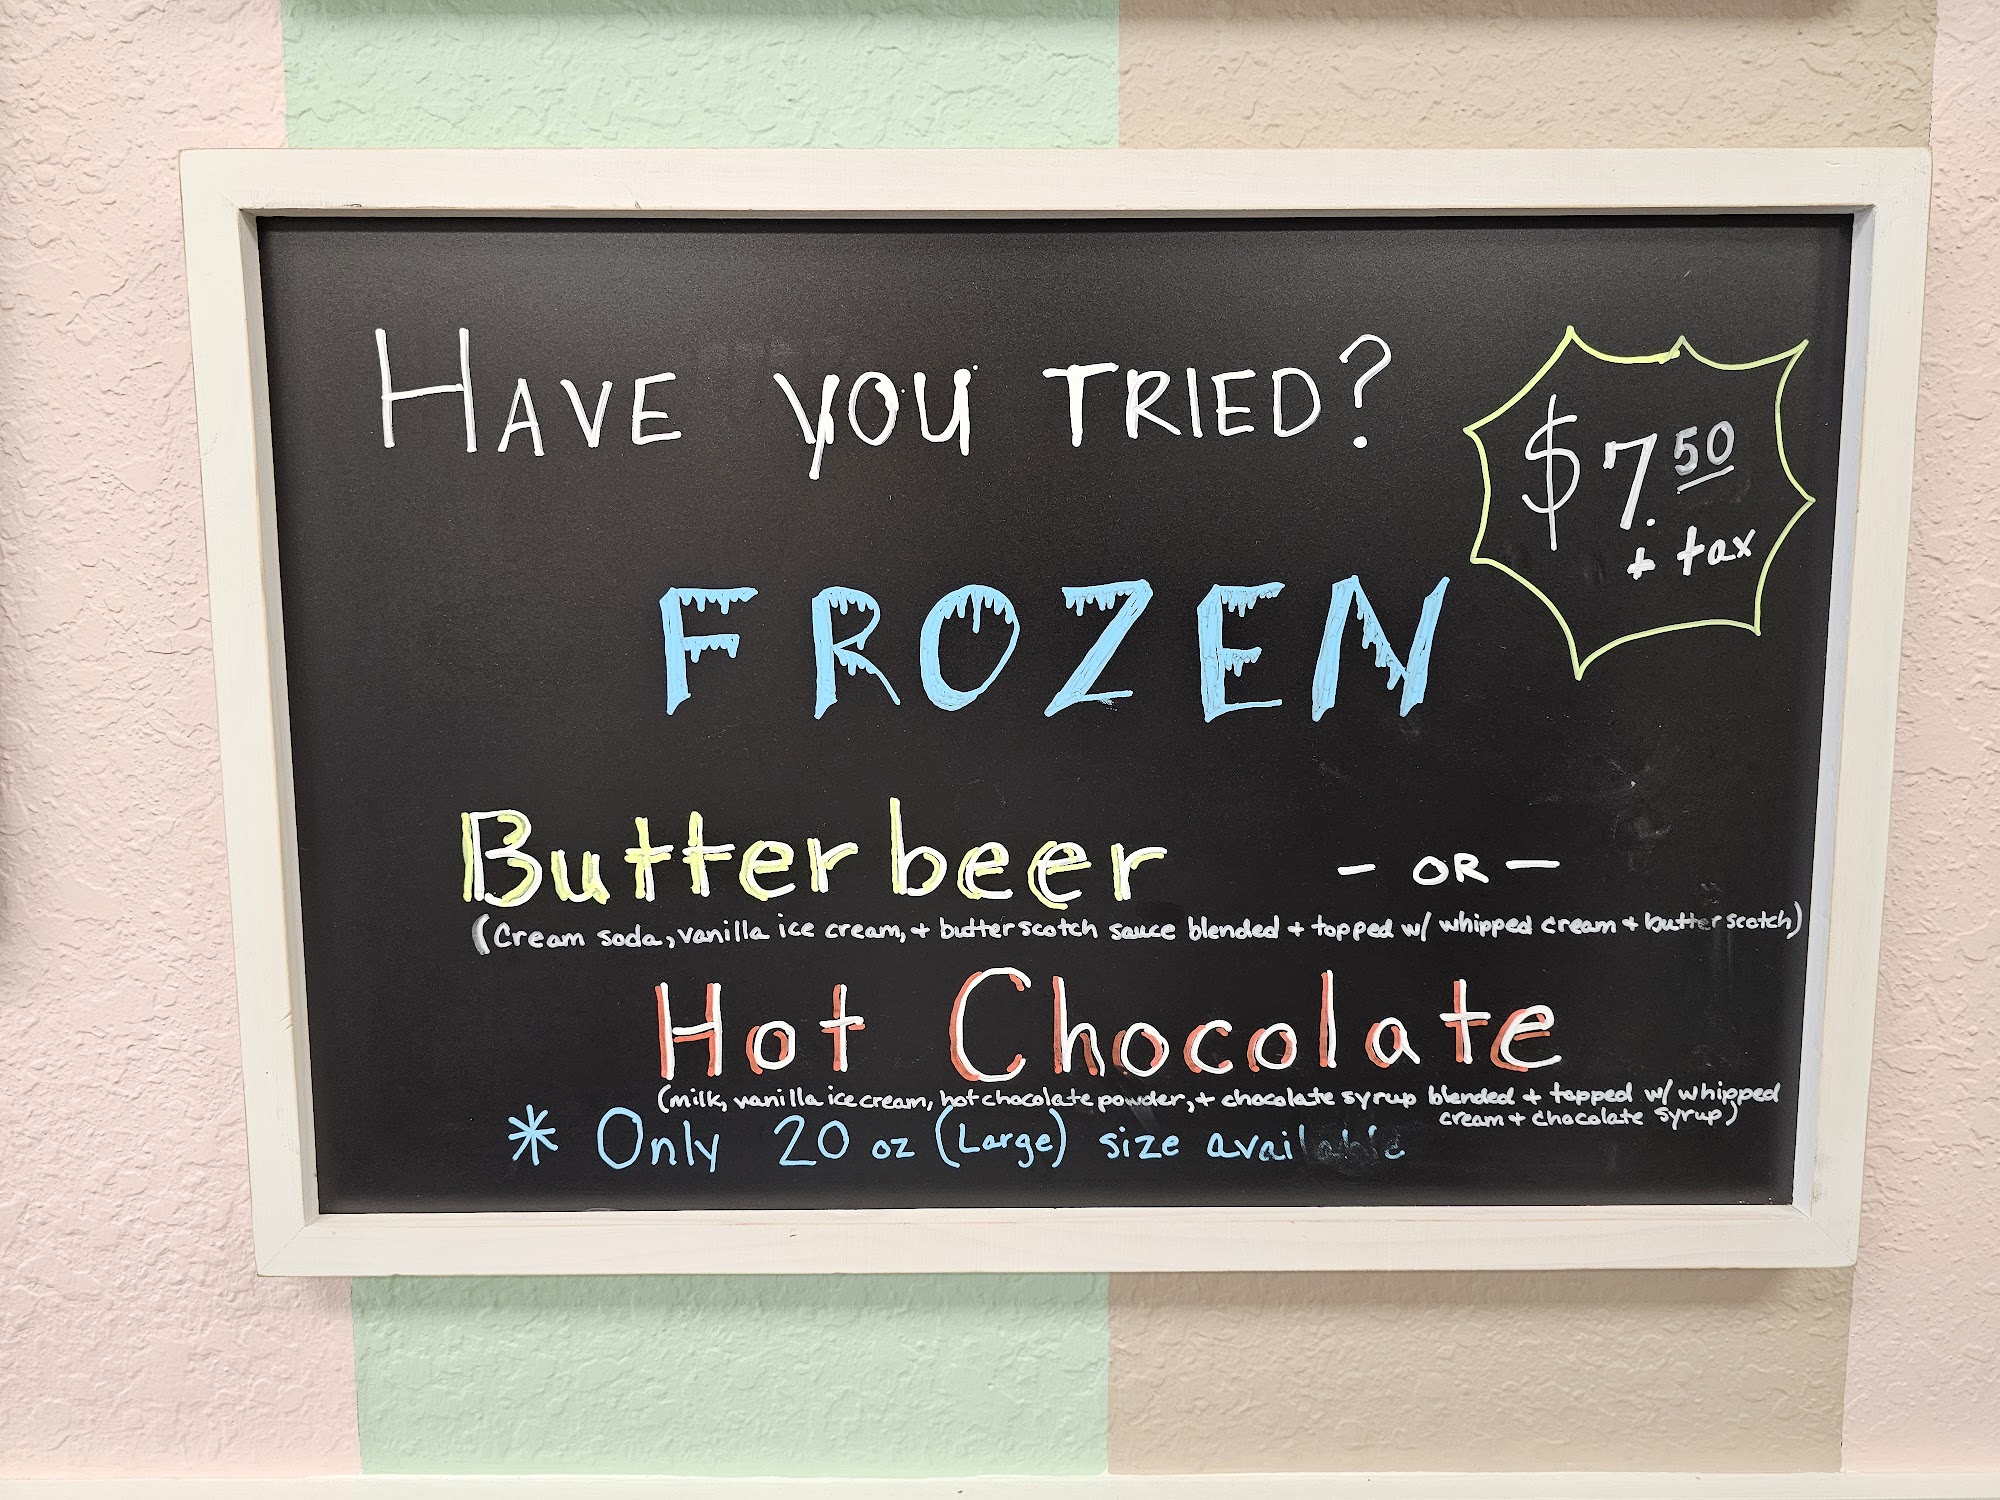 HAVE YOU TRIED?
$7.50
+ tax
FROZEN
Butterbeer - OR -
(Cream soda, vanilla ice cream, + butterscotch sauce blended + topped w/ whipped cream + butterscotch)
Hot Chocolate
(milk, vanilla ice cream, hot chocolate powder, + chocolate syrup blended + topped w/ whipped
cream + chocolate syrup)
* Only 20 oz (Large) size available